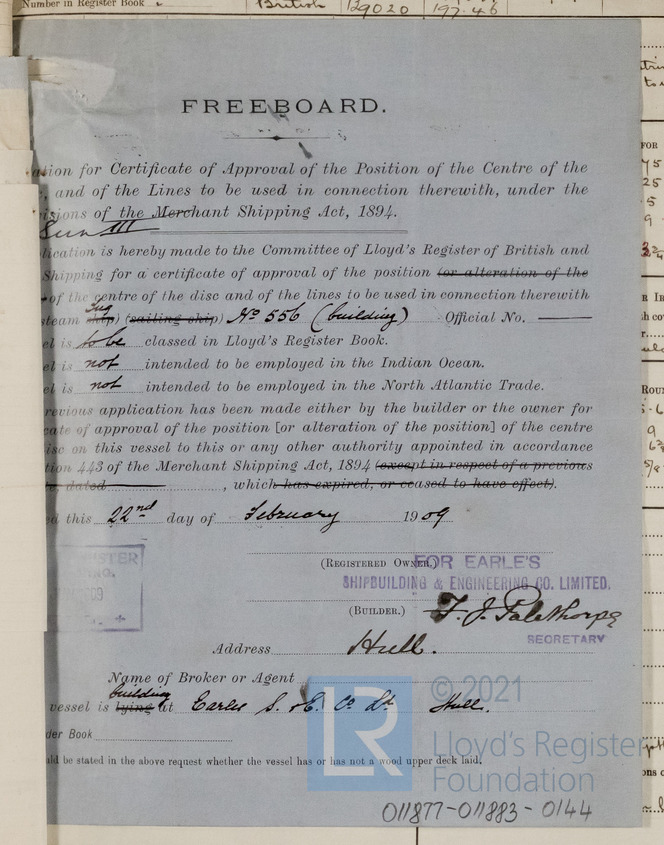 Number in Register Book British 129020 197.46
FREEBOARD.
ation for Certificate of Approval of the Position of the Centre of the
, and of the Lines to be used in connection therewith, under the
isions of the Merchant Shipping Act, 1894.
lication is hereby made to the Committee of Lloyd's Register of British and
Shipping for a certificate of approval of the position (or alteration of the
of the centre of the disc and of the lines to be used in connection therewith
steam ship) Tug (sailing ship) No 556 (building) Official No.
el is to be classed in Lloyd's Register Book.
el is not intended to be employed in the Indian Ocean.
el is not intended to be employed in the North Atlantic Trade.
revious application has been made either by the builder or the owner for
cate of approval of the position [or alteration of the position] of the centre
isc on this vessel to this or any other authority appointed in accordance
tion 443 of the Merchant Shipping Act, 1894 (except in respect of a previous
te, dated , which has expired, or ceased to have effect).
d this 22nd day of February 1909
(REGISTERED OWNER.)
FOR EARLE'S
SHIPBUILDING & ENGINEERING CO. LIMITED.
(BUILDER.) F. J. Palethorpe
SECRETARY
Address Hull.
Name of Broker or Agent
building
vessel is lying at Earles S. & E. Co Ld Hull.
der Book
uld be stated in the above request whether the vessel has or has not a wood upper deck laid.
LR © 2021
Lloyd's Register
Foundation
011877-011883-0144